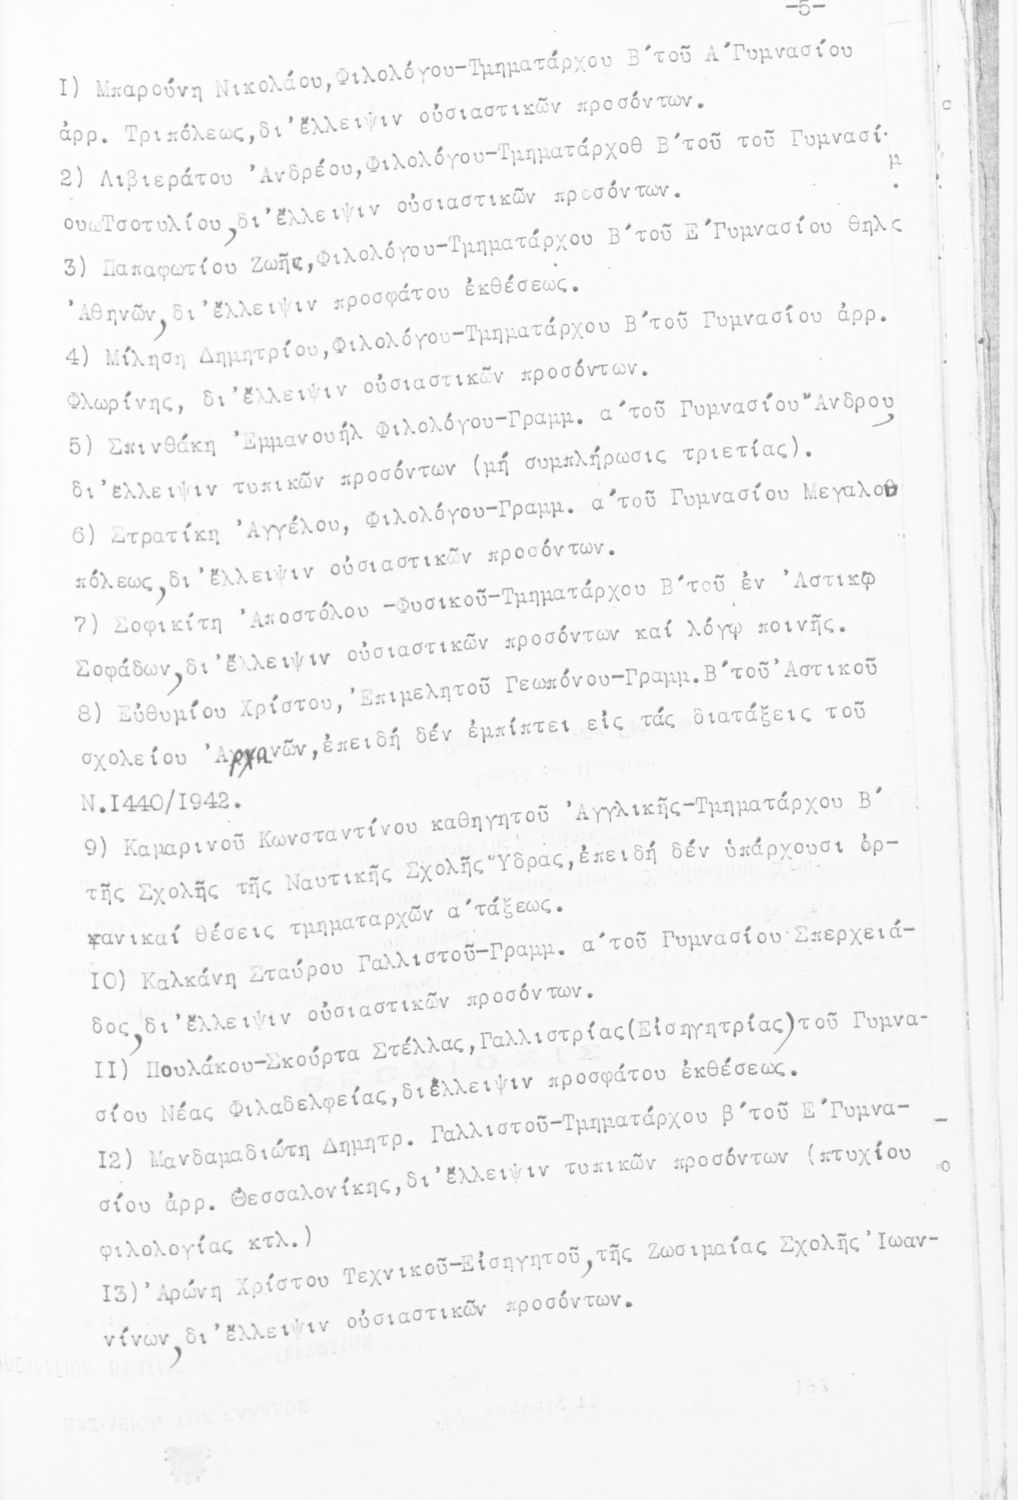 -5-
I) Μπαρούνη Νικολάου,Φιλολόγου-Τμηματάρχου Β΄τοῦ Α΄Γυμνασίου
ἀρρ. Τριπόλεως,δι΄ἔλλειψιν οὐσιαστικῶν προσόντων.
2) Λιβιεράτου ᾿Ανδρέου,Φιλολόγου-Τμηματάρχοθ Β΄τοῦ τοῦ Γυμνασί
ουωΤσοτυλίου,δι᾿ἔλλειψιν οὐσιαστικῶν προσόντων.
3) Παπαφωτίου Ζωῆς,Φιλολόγου-Τμηματάρχου Β΄τοῦ Ε΄Γυμνασίου θηλς
᾿Αθηνῶν,δι᾿ἔλλειψιν προσφάτου ἐκθέσεως.
4) Μίληση Δημητρίου,Φιλολόγου-Τμηματάρχου Β΄τοῦ Γυμνασίου ἀρρ.
Φλωρίνης, δι᾿ἔλλειψιν οὐσιαστικῶν προσόντων.
5) Σπινθάκη ᾿Εμμανουήλ Φιλολόγου-Γραμμ. α΄τοῦ Γυμνασίου῎Ανδρου,
δι᾿ἔλλειψιν τυπικῶν προσόντων (μή συμπλήρωσις τριετίας).
6) Στρατίκη ᾿Αγγέλου, Φιλολόγου-Γραμμ. α΄τοῦ Γυμνασίου Μεγαλο
πόλεως,δι᾿ἔλλειψιν οὐσιαστικῶν προσόντων.
7) Σοφικίτη ᾿Αποστόλου -Φυσικοῦ-Τμηματάρχου Β΄τοῦ ἐν ᾿Αστικῷ
Σοφάδων,δι᾿ἔλλειψιν οὐσιαστικῶν προσόντων καί λόγῳ ποινῆς.
8) Εὐθυμίου Χρίστου,᾿Επιμελητοῦ Γεωπόνου-Γραμμ.Β΄τοῦ᾿Αστικοῦ
σχολείου ᾿Αρχανῶν,ἐπειδή δέν ἐμπίπτει εἰς τάς διατάξεις τοῦ
Ν.I440/I942.
9) Καμαρινοῦ Κωνσταντίνου καθηγητοῦ ᾿Αγγλικῆς-Τμηματάρχου Β΄
τῆς Σχολῆς τῆς Ναυτικῆς Σχολῆς῞Υδρας,ἐπειδή δέν ὑπάρχουσι ὀρ-
γανικαί θέσεις τμηματαρχῶν α΄τάξεως.
IO) Καλκάνη Σταύρου Γαλλιστοῦ-Γραμμ. α΄τοῦ Γυμνασίου Σπερχειά-
δος,δι᾿ἔλλειψιν οὐσιαστικῶν προσόντων.
II) Πουλάκου-Σκούρτα Στέλλας,Γαλλιστρίας(Εἰσηγητρίας)τοῦ Γυμνα-
σίου Νέας Φιλαδελφείας,διἔλλειψιν προσφάτου ἐκθέσεως.
I2) Μανδαμαδιώτη Δημητρ. Γαλλιστοῦ-Τμηματάρχου β΄τοῦ Ε΄Γυμνα-
σίου ἀρρ. Θεσσαλονίκης,δι᾿ἔλλειψιν τυπικῶν προσόντων (πτυχίου
φιλολογίας κτλ.)
I3)᾿Αρώνη Χρίστου Τεχνικοῦ-Εἰσηγητοῦ,τῆς Ζωσιμαίας Σχολῆς᾿Ιωαν-
νίνων,δι᾿ἔλλειψιν οὐσιαστικῶν προσόντων.